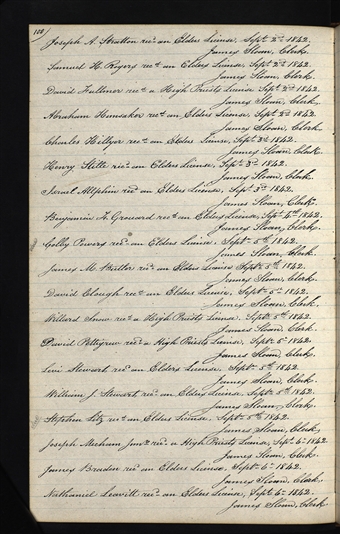 108
Joseph A. Stratton rec.d an Elders License, Sept. 2.d 1842.
James Sloan, Clerk.
Samuel H. Rogers rec.d an Elders License, Sept. 2.d 1842.
James Sloan, Clerk.
David Fullmer rec.d a High Priests License Sept. 2.d 1842.
James Sloan, Clerk.
Abraham Hunsaker rec.d an Elders License, Sept. 2.d 1842.
James Sloan, Clerk.
Charles Hillyer rec.d an Elders License, Sept. 3.d 1842.
James Sloan, Clerk.
Henry Stille rec.d an Elders License, Sept. 3.d 1842.
James Sloan, Clerk.
Israel Allphin rec.d an Elders License, Sept. 3.d 1842.
James Sloan, Clerk.
Benjamin F. Grouard rec.d an Elders License, Sept. 4.th 1842.
James Sloan, Clerk.
Powers rec.d an Elders License. Sept. 5.th 1842.
James Sloan, Clerk.
James M. rec.d an Elders License Sept. 5.th 1842.
James Sloan, Clerk.
David Clough rec.d an Elders License, Sept. 5.th 1842.
James Sloan, Clerk.
Willard Snow rec.d a High Priests License, Sept. 5.th 1842.
James Sloan, Clerk.
David Pettigrew rec.d a High Priests License, Sept. 5.th 1842.
James Sloan, Clerk.
Levi Stewart rec.d an Elders License, Sept. 5.th 1842.
James Sloan, Clerk.
William J. Stewart rec.d an Elders License, Sept. 5.th 1842.
James Sloan, Clerk.
Stephen rec.d an Elders License, Sept. 5.th 1842.
James Sloan, Clerk.
Joseph Mecham Jun.r rec.d a High Priests License, Sept. 6.th 1842.
James Sloan, Clerk.
James Braden rec.d an Elders License, Sept. 6.th 1842.
James Sloan, Clerk.
Nathaniel Leavitt rec.d an Elders License, Sept. 6.th 1842.
James Sloan, Clerk.